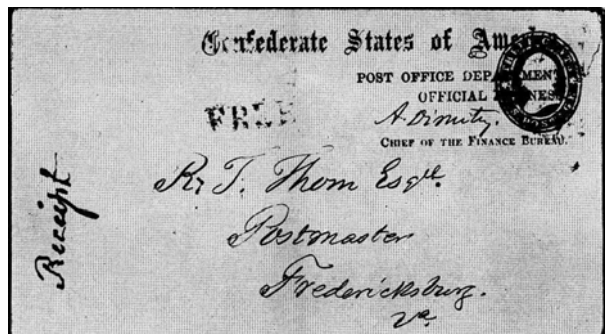 Confederate States of America
POST OFFICE DEPARTMENT
OFFICIAL BUSINESS
FREE
A. Dimitry.
CHIEF OF THE FINANCE BUREAU.
R. T. Thom Esqr.
Postmaster
Fredericksburg.
Va
Receipt